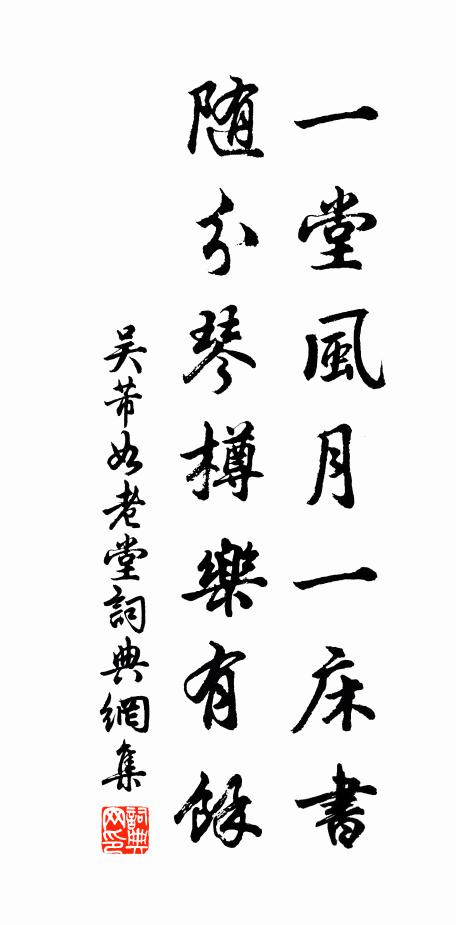 一堂風月一床書
随分琴樽樂有餘
吴芾如老堂詞典網集
詞典網印